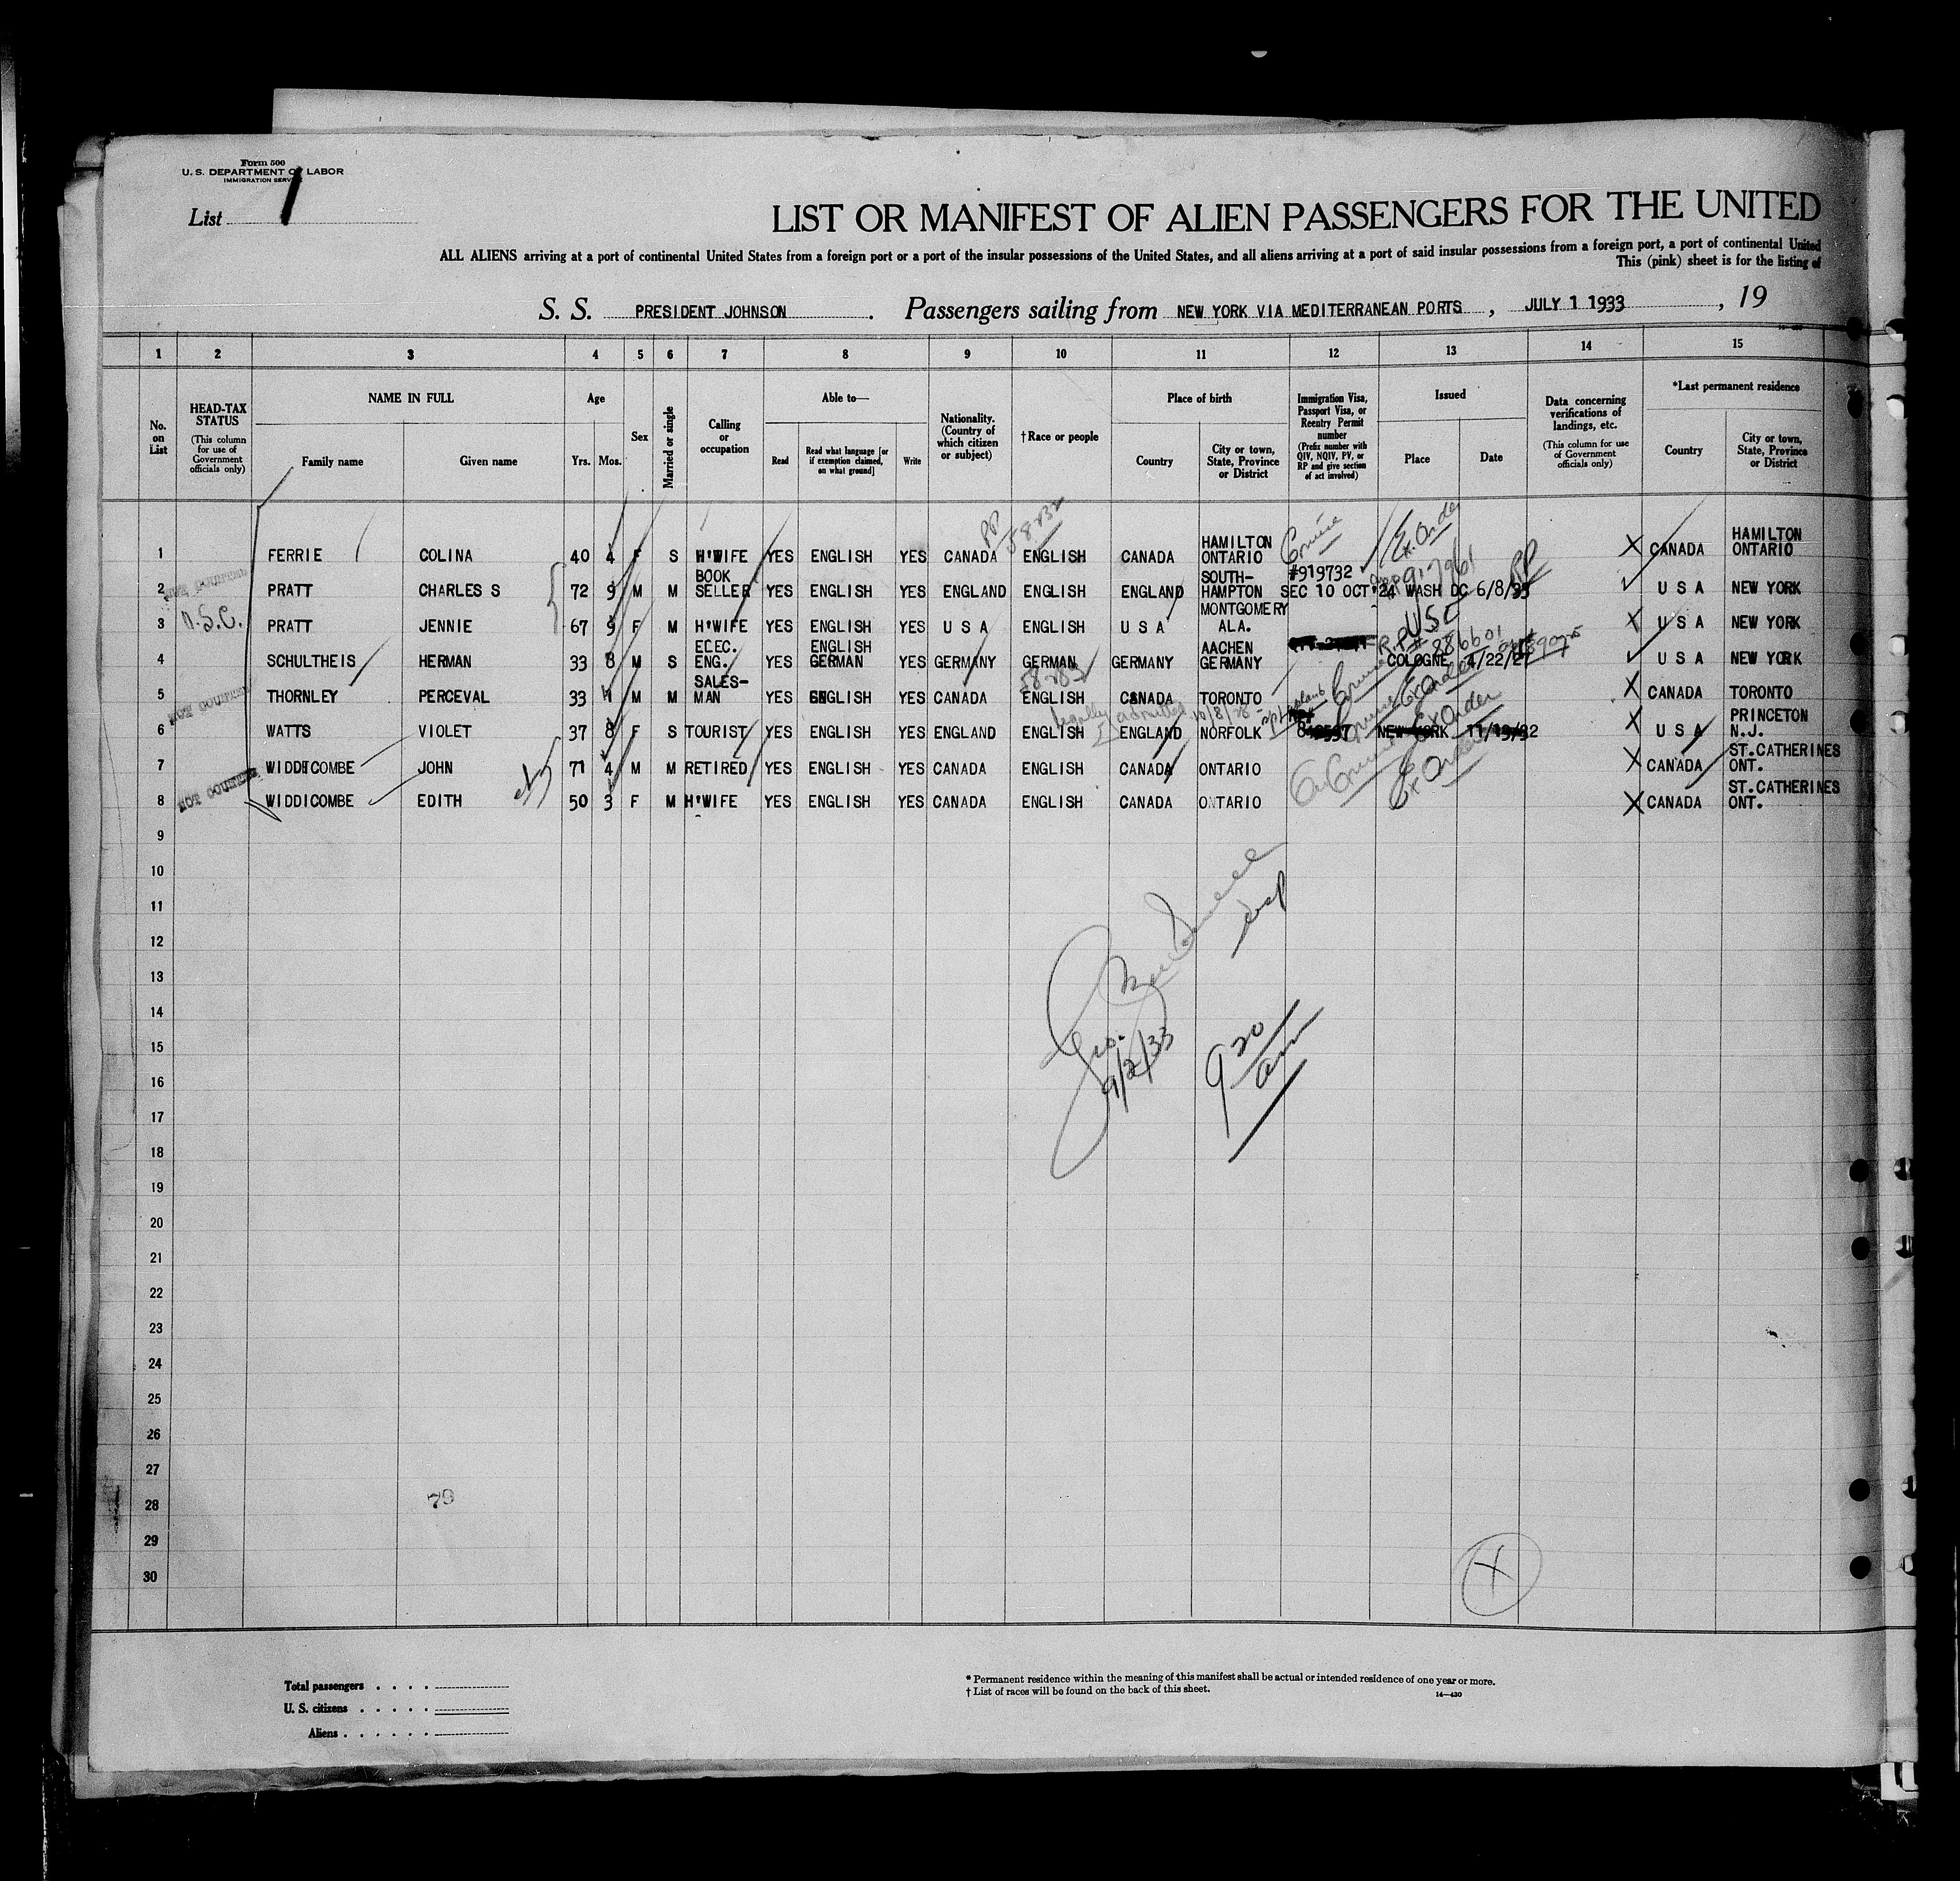 Form 500
U. S. DEPARTMENT OF LABOR
IMMIGRATION SERVICE
List 1
LIST OR MANIFEST OF ALIEN PASSENGERS FOR THE UNITED
ALL ALIENS arriving at a port of continental United States from a foreign port or a port of the insular possessions of the United States, and all aliens arriving at a port of said insular possessions from a foreign port, a port of continental United
This (pink) sheet is for the listing of
S. S. PRESIDENT JOHNSON. Passengers sailing from NEW YORK VIA MEDITERRANEAN PORTS, JULY 1 1933, 19
1 2 3 4 5 6 7 8 9 10 11 12 13 14 15
No. on List
HEAD-TAX STATUS (This column for use of Government officials only)
NAME IN FULL Family name Given name
Age Yrs. Mos.
Sex
Married or single
Calling or occupation
Able to— Read Read what language [or if exemption claimed, on what ground] Write
Nationality. (Country of which citizen or subject)
†Race or people
Place of birth Country City or town, State, Province or District
Immigration Visa, Passport Visa, or Reentry Permit number (Prefix number with QIV, NQIV, PV, or RP and give section of act involved)
Issued Place Date
Data concerning verifications of landings, etc. (This column for use of Government officials only)
*Last permanent residence Country City or town, State, Province or District
1 FERRIE COLINA 40 4 F S H'WIFE YES ENGLISH YES CANADA ENGLISH CANADA HAMILTON ONTARIO Ex. Order X CANADA HAMILTON ONTARIO
2 NOT COUNTED PRATT CHARLES S 72 9 M M BOOK SELLER YES ENGLISH YES ENGLAND ENGLISH ENGLAND SOUTH-HAMPTON #919732 SEC 10 OCT'24 WASH DC 6/8/33 RP U S A NEW YORK
3 U.S.C. PRATT JENNIE 67 9 F M H'WIFE YES ENGLISH YES U S A ENGLISH U S A MONTGOMERY ALA. USC X U S A NEW YORK
4 SCHULTHEIS HERMAN 33 8 M S ELEC. ENG. YES ENGLISH GERMAN YES GERMANY GERMAN GERMANY AACHEN GERMANY R.P. # 886601 COLOGNE 4/22/27 U S A NEW YORK
5 NOT COUNTED THORNLEY PERCEVAL 33 4 M M SALES-MAN YES ENGLISH YES CANADA ENGLISH CANADA TORONTO Ex Order X CANADA TORONTO
legally admitted
6 WATTS VIOLET 37 8 F S TOURIST YES ENGLISH YES ENGLAND ENGLISH ENGLAND NORFOLK NEW YORK 11/19/32 Ex Order X U S A PRINCETON N.J.
7 WIDDICOMBE JOHN 71 4 M M RETIRED YES ENGLISH YES CANADA ENGLISH CANADA ONTARIO Ex Order X CANADA ST.CATHERINES ONT.
8 NOT COUNTED WIDDICOMBE EDITH 50 3 F M H'WIFE YES ENGLISH YES CANADA ENGLISH CANADA ONTARIO X CANADA ST.CATHERINES ONT.
9
10
11
12
13
14
15
9/2/33
9 20 am
16
17
18
19
20
21
22
23
24
25
26
27
28
79
29
30
X
Total passengers . . . .
U. S. citizens . . . . .
Aliens . . . . . .
* Permanent residence within the meaning of this manifest shall be actual or intended residence of one year or more.
† List of races will be found on the back of this sheet.
14—430